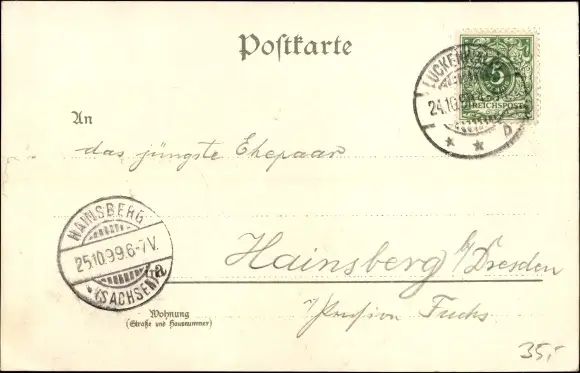 Postkarte
5
REICHSPOST
LUCKENWALDE
24.10.99
b
An
das jüngste Ehepaar
HAINSBERG
25.10.99.6-7V.
*(SACHSEN)a
Hainsberg b/Dresden
Wohnung
(Straße und Hausnummer)
Pension Fuchs
35,-